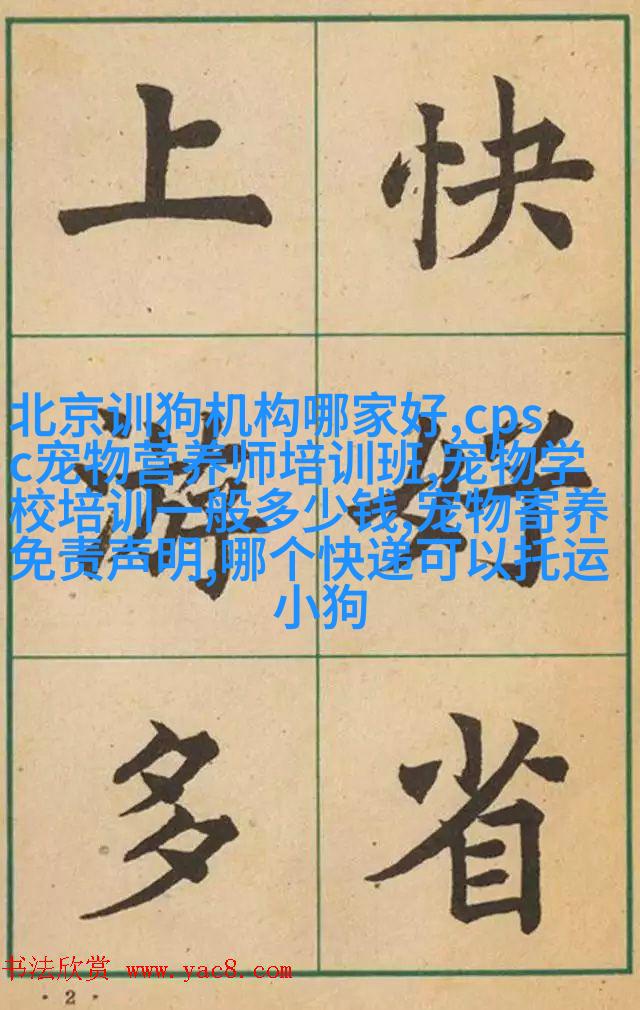 上游多
快好省
北京训狗机构哪家好,cps
c宠物营养师培训班,宠物学
校培训一般多少钱,宠物寄养
免责声明,哪个快递可以托运
小狗
书法欣赏 www.yac8.com
·2·